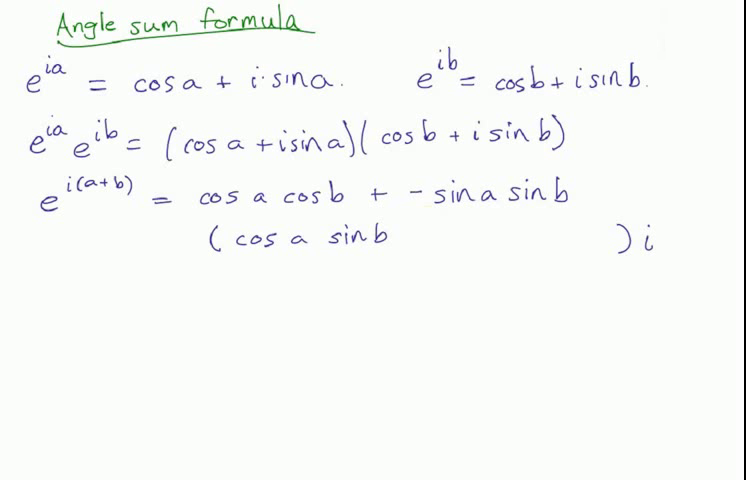 Angle sum formula
e^{ia} = cos a + i·sin a.    e^{ib} = cos b + i sin b.
e^{ia} e^{ib} = (cos a + i sin a)(cos b + i sin b)
e^{i(a+b)} = cos a cos b + - sin a sin b
(cos a sin b    ) i